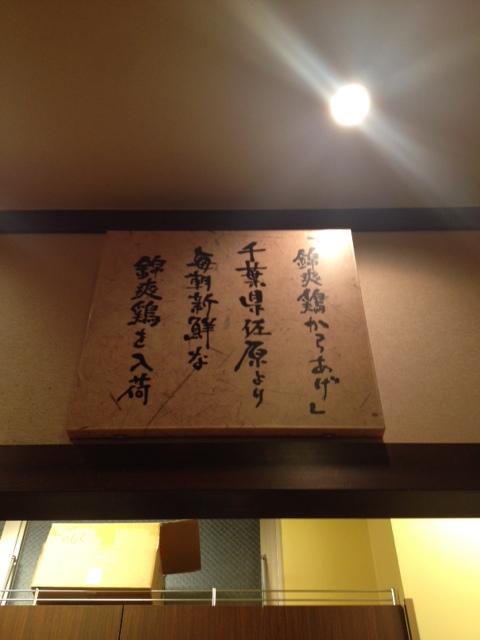 「錦爽鶏からあげ」
千葉県佐原より
毎朝新鮮な
錦爽鶏を入荷